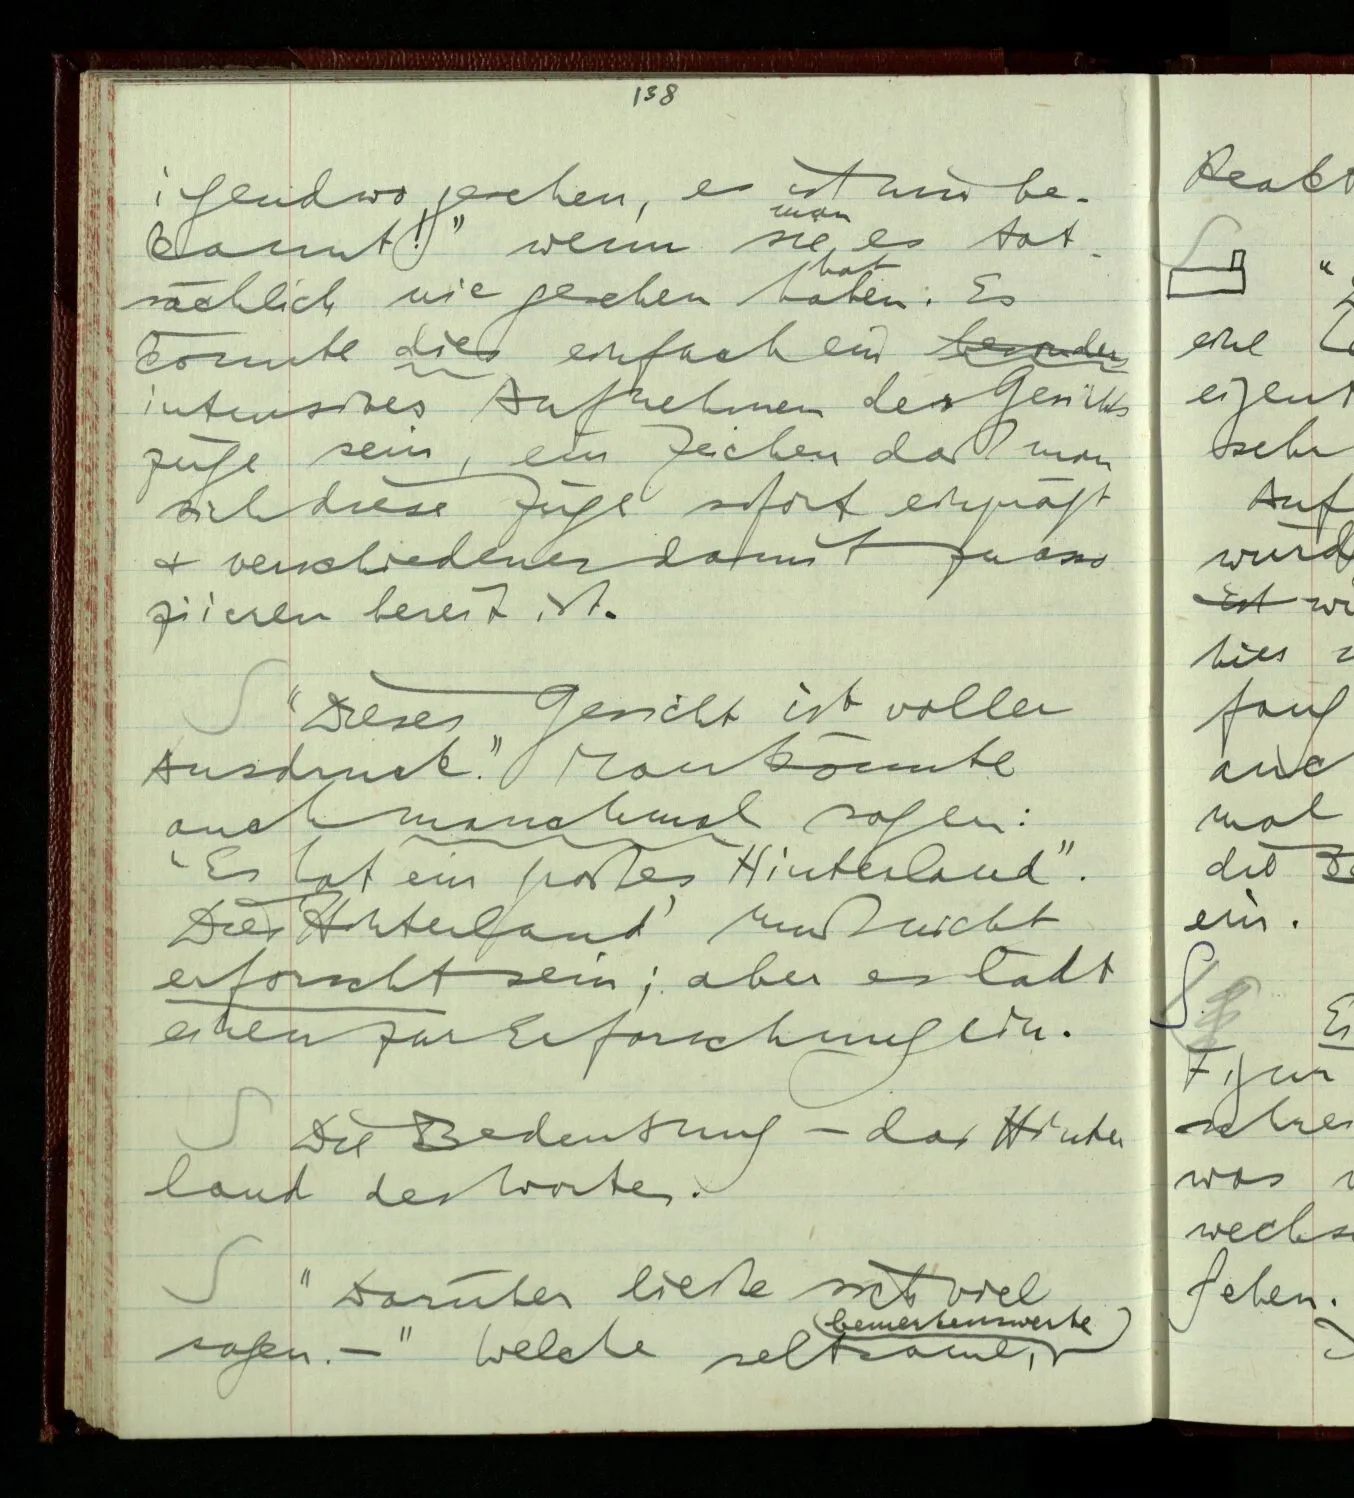 138
irgendwo gesehen, es ist mir be-
kannt!" wenn man
sie es tat-
hat
sächlich nie gesehen haben. Es
könnte dies einfach ein besonders
intensives Aufnehmen der Gesichts
züge sein, ein Zeichen daß man
sich diese Züge sofort einprägt
& verschiedenes damit zu asso
ziieren bereit ist.
"Dieses Gesicht ist voller
Ausdruck." Man könnte
auch manchmal sagen:
"Es hat ein großes Hinterland".
Dies 'Hinterland' muß nicht
erforscht sein; aber es lädt
einen zur Erforschung ein.
Die Bedeutung – das Hinter
land des Wortes.
"Darüber ließe sich viel
(bemerkenswerte)
sagen. –" Welche seltsame,
Reakt
"D
eine
eigent
sehr
Auf
wurd
ist
hies
fang
auch
mal
die Be
ein.
Figur
schrei
was
wechs
geben.